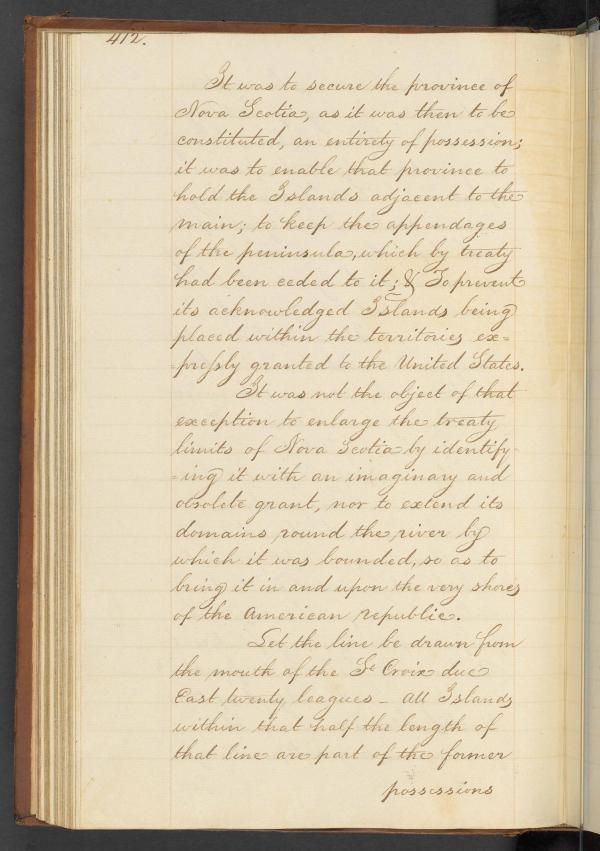 412.
It was to secure the province of
Nova Scotia, as it was then to be
constituted, an entirety of possession;
it was to enable that province to
hold the Islands adjacent to the
main; to keep the appendages
of the peninsula, which by treaty
had been ceded to it; & To prevent
its acknowledged Islands being
placed within the territories ex=
=pressly granted to the United States.
It was not the object of that
exception to enlarge the treaty
limits of Nova Scotia by identify-
=ing it with an imaginary and
obsolete grant, nor to extend its
domains round the river by
which it was bounded, so as to
bring it in and upon the very shores
of the American republic.
Let the line be drawn from
the mouth of the St Croix due
East twenty leagues - All Islands
within that half the length of
that line are part of the former
possessions